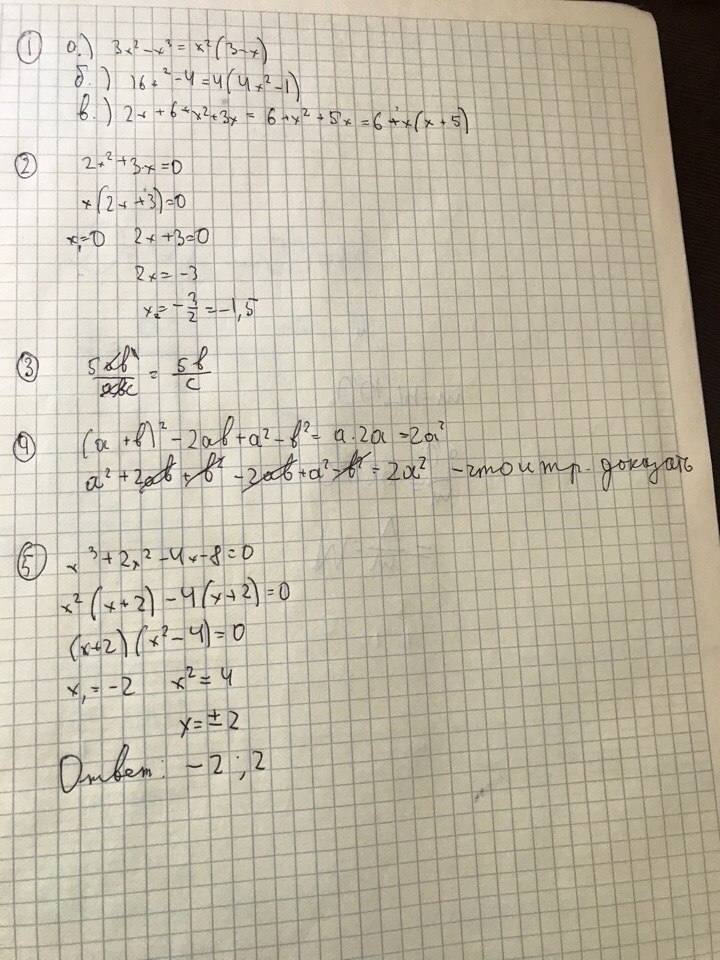 ① а.) 3x² - x³ = x²(3-x)
б.) 16x² - 4 = 4(4x² - 1)
в.) 2x + 6 + x² + 3x = 6 + x² + 5x = 6 + x(x + 5)
② 2x² + 3x = 0
x(2x + 3) = 0
x₁ = 0 2x + 3 = 0
2x = -3
x₂ = -3/2 = -1,5
③ 5ab/abc = 5b/c
④ (a + b)² - 2ab + a² - b² = a·2a = 2a²
a² + 2ab + b² - 2ab + a² - b² = 2a² - что и тр. доказать
⑤ x³ + 2x² - 4x - 8 = 0
x²(x+2) - 4(x+2) = 0
(x+2)(x² - 4) = 0
x₁ = -2 x² = 4
x = ± 2
Ответ: -2 ; 2